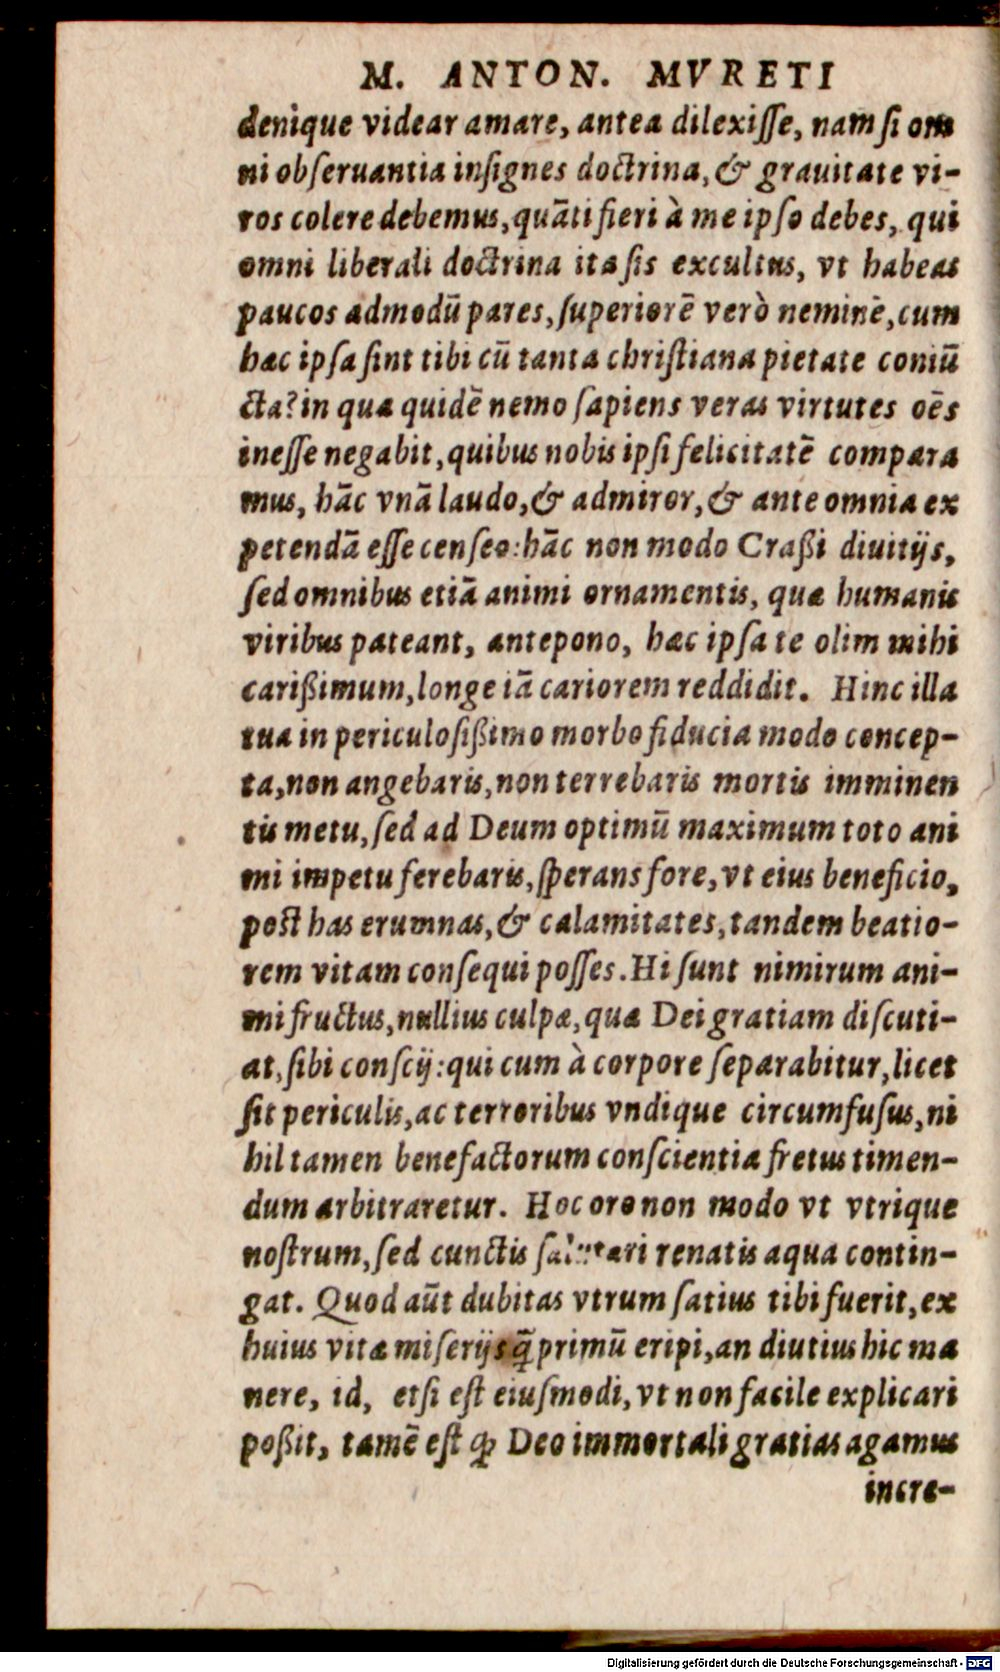 M. ANTON. MVRETI
denique videar amare, antea dilexiſſe, nam ſi om
ni obſeruantia inſignes doctrina, & grauitate vi-
ros colere debemus, quāti fieri à me ipſo debes, qui
omni liberali doctrina ita ſis excultus, vt habeas
paucos admodū pares, ſuperiorē verò neminē, cum
hæc ipſa ſint tibi cū tanta chriſtiana pietate coniū
cta? in qua quidē nemo ſapiens veras virtutes oēs
ineſſe negabit, quibus nobis ipſi felicitatē compara
mus, hāc vnā laudo, & admiror, & ante omnia ex
petendā eſſe cenſeo: hāc non modo Craßi diuitijs,
ſed omnibus etiā animi ornamentis, quæ humanis
viribus pateant, antepono, hæc ipſa te olim mihi
carißimum, longe iā cariorem reddidit. Hinc illa
tua in periculoſißimo morbo fiducia modo concep-
ta, non angebaris, non terrebaris mortis imminen
tis metu, ſed ad Deum optimū maximum toto ani
mi impetu ferebaris, ſperans fore, vt eius beneficio,
post has erumnas, & calamitates, tandem beatio-
rem vitam conſequi poſſes. Hi ſunt nimirum ani-
mi fructus, nullius culpæ, quæ Dei gratiam diſcuti-
at, ſibi conſcij: qui cum à corpore ſeparabitur, licet
ſit periculis, ac terroribus vndique circumfuſus, ni
hil tamen benefactorum conſcientia fretus timen-
dum arbitraretur. Hoc oro non modo vt vtrique
noſtrum, ſed cunctis renatis aqua contin-
gat. Quod aūt dubitas vtrum ſatius tibi fuerit, ex
huius vitæ miſerijs q̄ primū eripi, an diutius hic ma
nere, id, etſi eſt eiuſmodi, vt non facile explicari
poßit, tamē eſt ꝙ Deo immortali gratias agamus
incre-
Digitalisierung gefördert durch die Deutsche Forschungsgemeinschaft - DFG